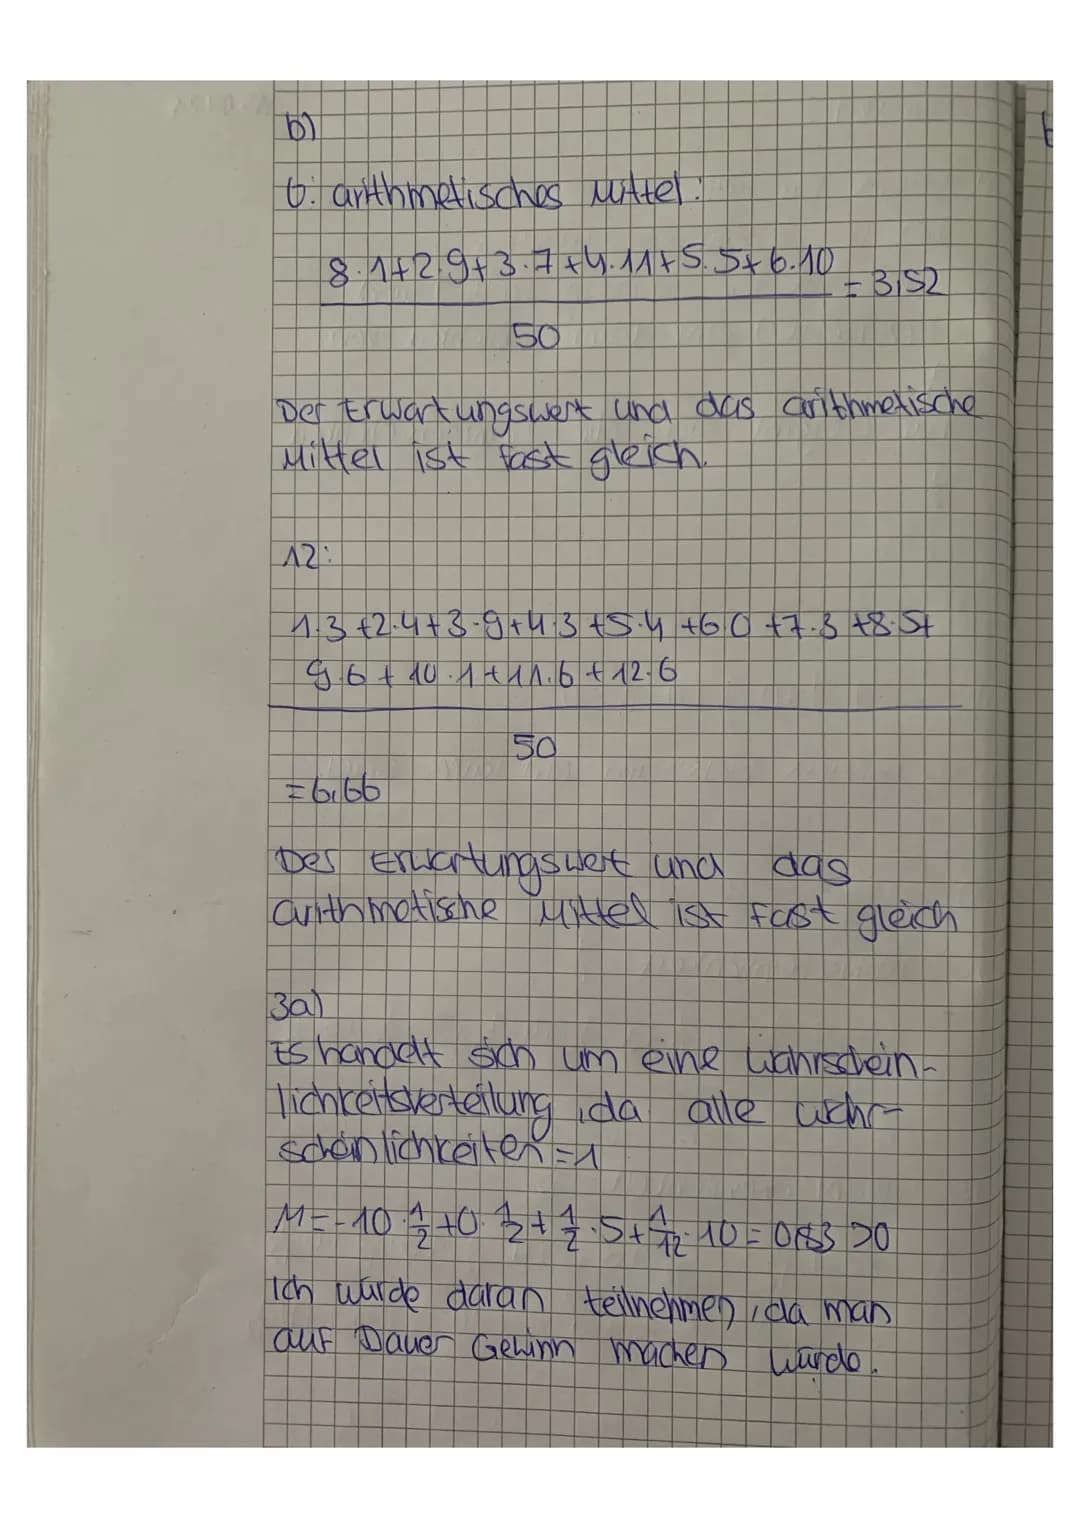 b)
6: arithmetisches Mittel:
8·1+2·9+3·7+4·11+5·5+6·10
= 3,52
50
Der Erwartungswert und das arithmetische
Mittel ist fast gleich.
12:
1·3+2·4+3·9+4·3+5·4+6·0+7·3+8·5+
9·6+10·1+11·6+12·6
50
=6,66
Der Erwartungswert und das
arithmetische Mittel ist fast gleich
3a)
Es handelt sich um eine Wahrschein-
lichkeitsverteilung, da alle wahr-
scheinlichkeiten=1
M=-10·1/2+0·1/2+1/2·5+1/12·10=0,83>0
Ich würde daran teilnehmen, da man
auf Dauer Gewinn machen würde.